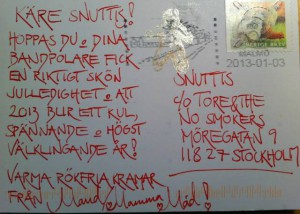 KÄRE SNUTTS!
HOPPAS DU & DINA
BANDPOLARE FICK
EN RIKTIGT SKÖN
JULLEDIGHET & ATT
2013 BLIR ETT KUL,
SPÄNNANDE & HÖGST
VÄLKLINGANDE ÅR!
VARMA RÖKFRIA KRAMAR
FRÅN Maud Mamma Mád!
MALMÖ
2013-01-03
SNUTTS
c/o TORE & THE
NO SMOKERS
MÖREGATAN 9
118 27 STOCKHOLM